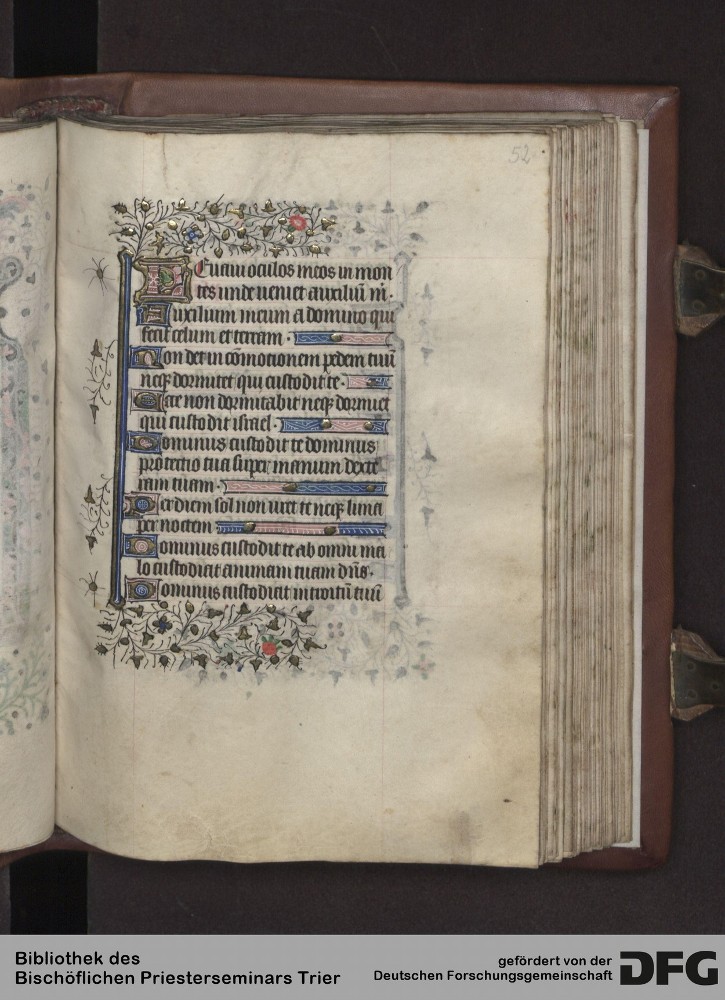 52
Leuaui oculos meos in mon
tes unde ueniet auxiliū m̄.
Auxilium meum a domino qui
fecit celum et terram.
Non det in cōmotionem pedem tuū
neqꝫ dormitet qui custodit te.
Ecce non dormitabit neqꝫ dormiet
qui custodit israel.
Dominus custodit te dominus
protectio tua super manum dexte
ram tuam.
Per diem sol non uret te neqꝫ luna
per noctem
Dominus custodit te ab omni ma
lo custodiat animam tuam dn̄s.
Dominus custodiat introitū tuū
Bibliothek des
Bischöflichen Priesterseminars Trier
gefördert von der
Deutschen Forschungsgemeinschaft
DFG